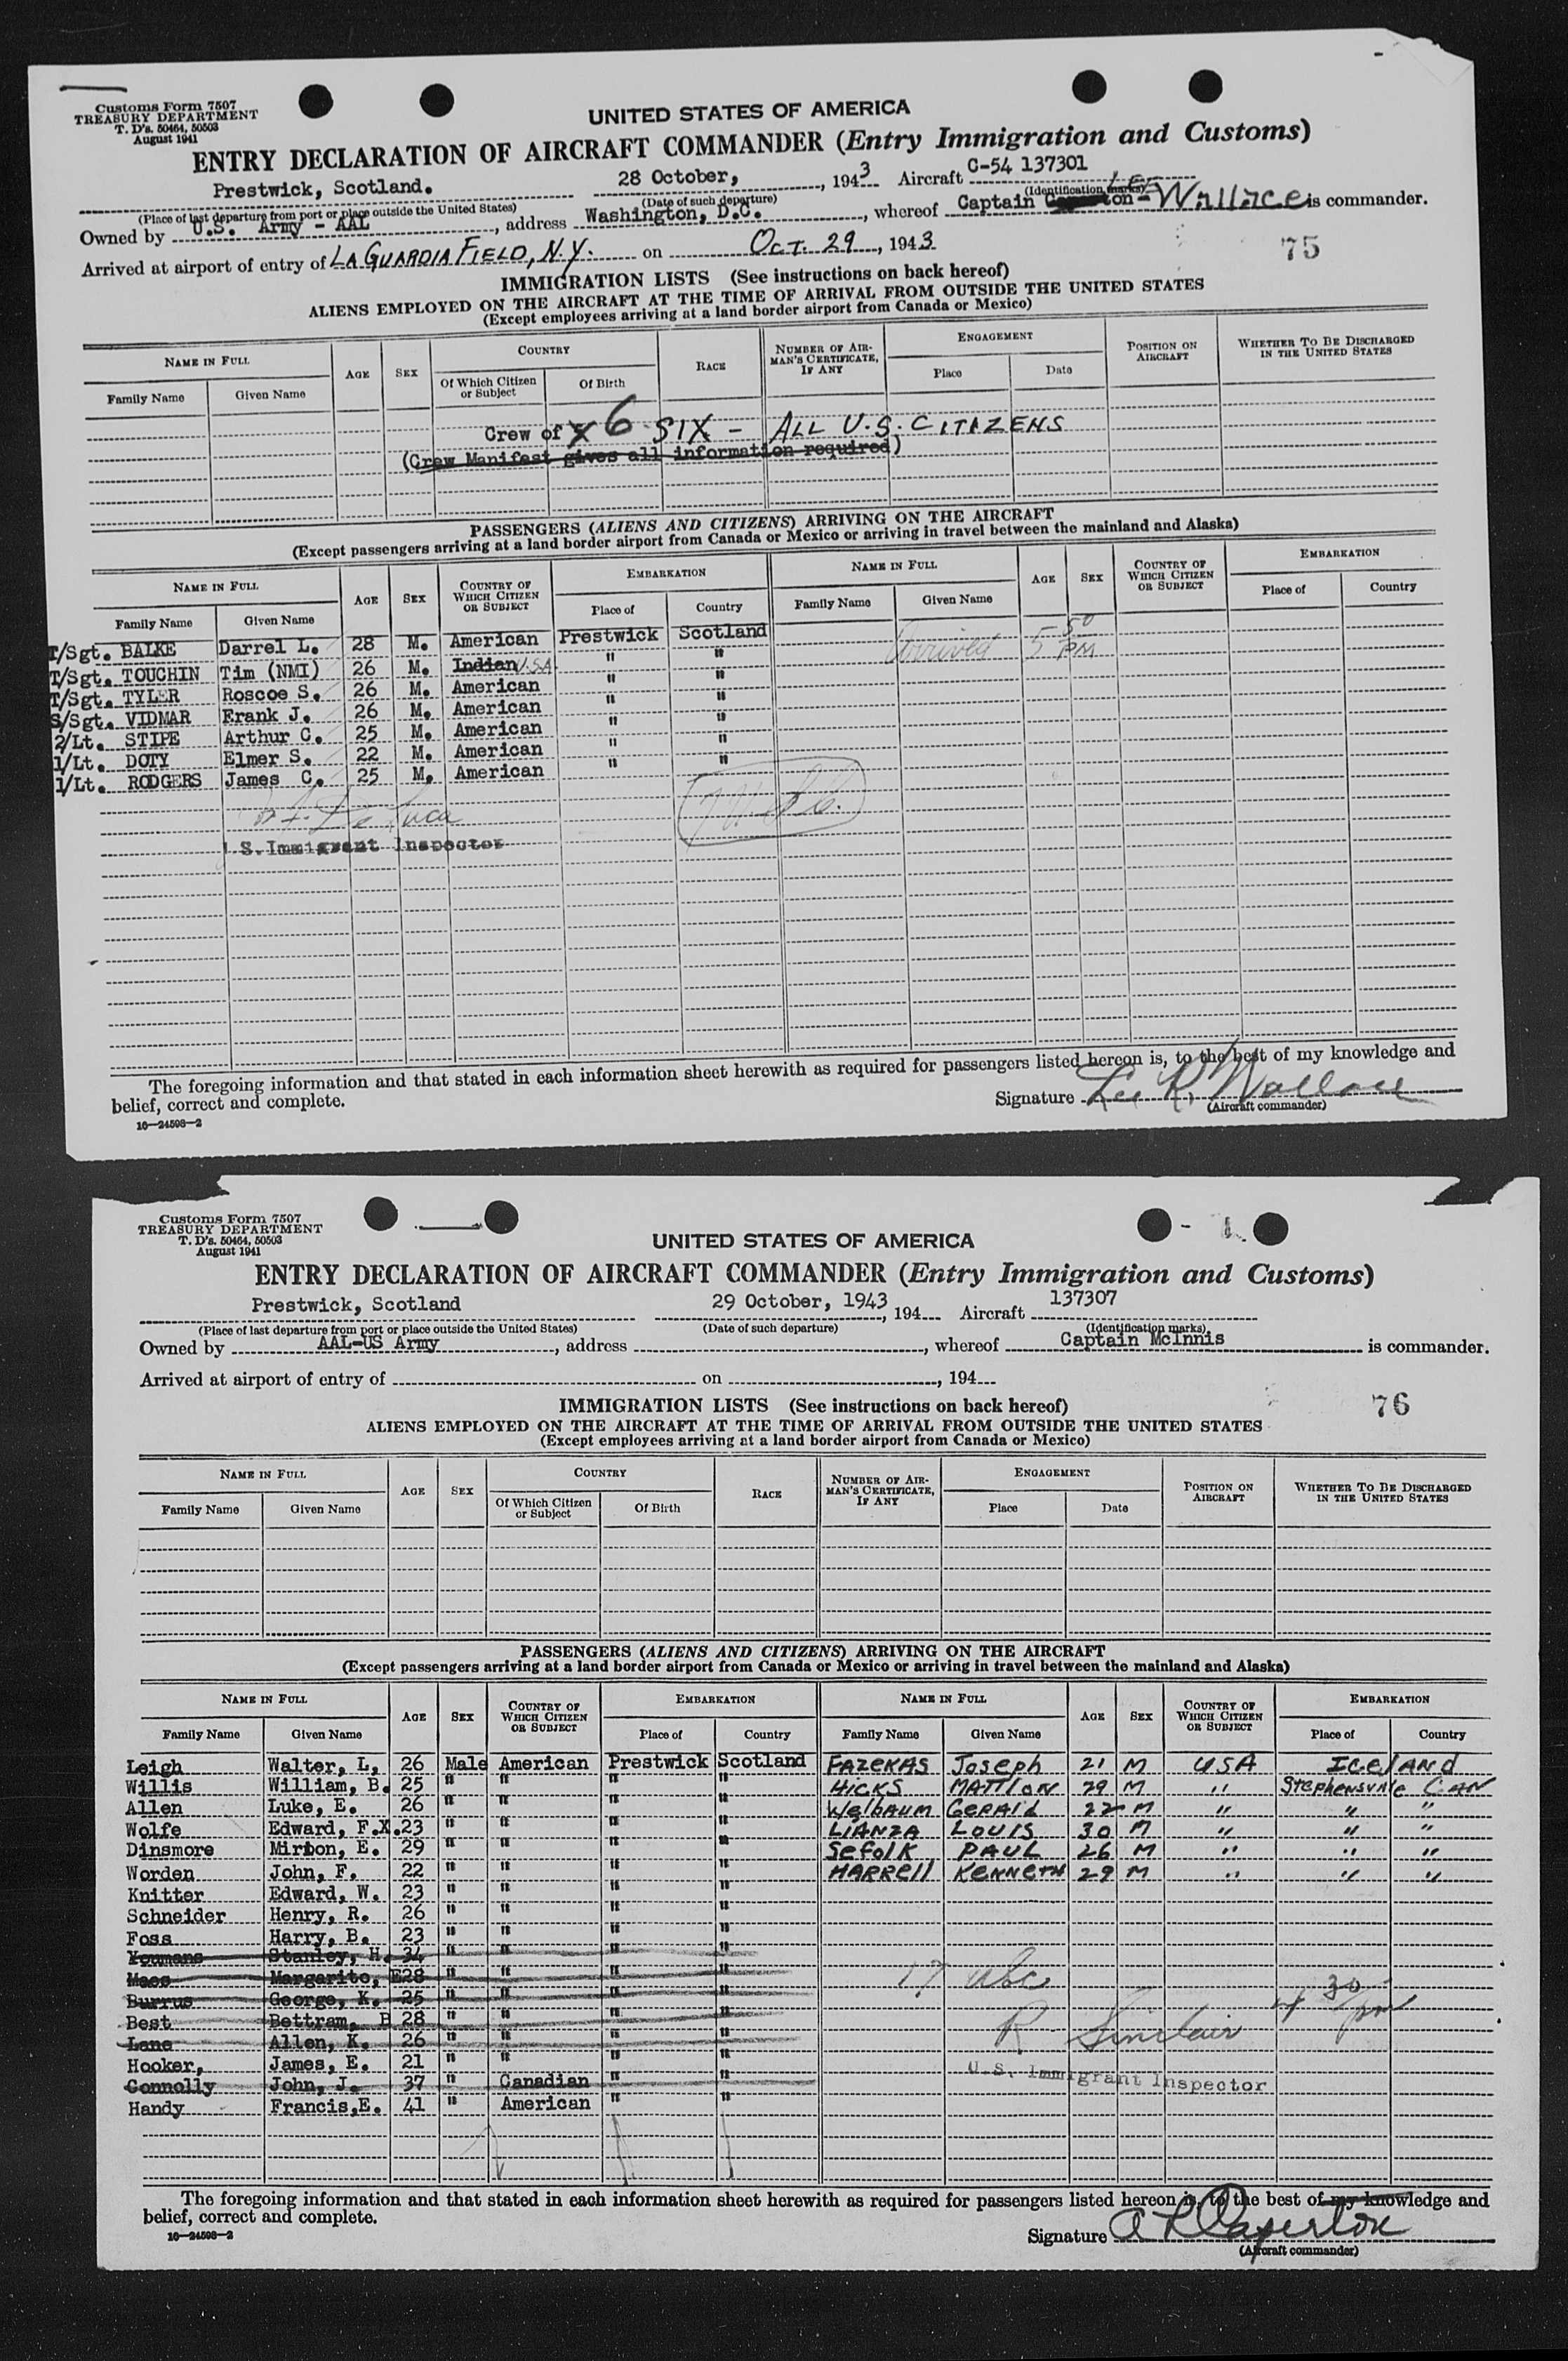 Customs Form 7507
TREASURY DEPARTMENT
T. D's. 50464, 50503
August 1941
UNITED STATES OF AMERICA
ENTRY DECLARATION OF AIRCRAFT COMMANDER (Entry Immigration and Customs)
Prestwick, Scotland. 28 October, , 1943 Aircraft C-54 137301
(Place of last departure from port or place outside the United States) (Date of such departure) (Identification marks)
Owned by U.S. Army - AAL, address Washington, D.C., whereof Captain LEE Wallace is commander.
Arrived at airport of entry of LA GUARDIA FIELD, N.Y. on OCT. 29, 1943
75
IMMIGRATION LISTS (See instructions on back hereof)
ALIENS EMPLOYED ON THE AIRCRAFT AT THE TIME OF ARRIVAL FROM OUTSIDE THE UNITED STATES
(Except employees arriving at a land border airport from Canada or Mexico)
NAME IN FULL AGE SEX COUNTRY RACE NUMBER OF AIRMAN'S CERTIFICATE, IF ANY ENGAGEMENT POSITION ON AIRCRAFT WHETHER TO BE DISCHARGED IN THE UNITED STATES
Family Name Given Name Of Which Citizen or Subject Of Birth Place Date
Crew of 6 SIX - ALL U.S. CITIZENS
(Crew Manifest gives all information required)
PASSENGERS (ALIENS AND CITIZENS) ARRIVING ON THE AIRCRAFT
(Except passengers arriving at a land border airport from Canada or Mexico or arriving in travel between the mainland and Alaska)
NAME IN FULL AGE SEX COUNTRY OF WHICH CITIZEN OR SUBJECT EMBARKATION NAME IN FULL AGE SEX COUNTRY OF WHICH CITIZEN OR SUBJECT EMBARKATION
Family Name Given Name Place of Country Family Name Given Name Place of Country
T/Sgt. BALKE Darrel L. 28 M. American Prestwick Scotland Arrived 5 50 PM
T/Sgt. TOUCHIN Tim (NMI) 26 M. Indian U.S.A " "
T/Sgt. TYLER Roscoe S. 26 M. American " "
S/Sgt. VIDMAR Frank J. 26 M. American " "
2/Lt. STIPE Arthur C. 25 M. American " "
1/Lt. DOTY Elmer S. 22 M. American " "
1/Lt. RODGERS James C. 25 M. American " "
De Luca
U.S. Immigrant Inspector
The foregoing information and that stated in each information sheet herewith as required for passengers listed hereon is, to the best of my knowledge and
belief, correct and complete.
Signature Lee R. Wallace
(Aircraft commander)
16—24598-2
Customs Form 7507
TREASURY DEPARTMENT
T. D's. 50464, 50503
August 1941
UNITED STATES OF AMERICA
ENTRY DECLARATION OF AIRCRAFT COMMANDER (Entry Immigration and Customs)
Prestwick, Scotland 29 October, 1943, 194 Aircraft 137307
(Place of last departure from port or place outside the United States) (Date of such departure) (Identification marks)
Owned by AAL-US Army, address , whereof Captain McInnis is commander.
Arrived at airport of entry of on , 194
76
IMMIGRATION LISTS (See instructions on back hereof)
ALIENS EMPLOYED ON THE AIRCRAFT AT THE TIME OF ARRIVAL FROM OUTSIDE THE UNITED STATES
(Except employees arriving at a land border airport from Canada or Mexico)
NAME IN FULL AGE SEX COUNTRY RACE NUMBER OF AIRMAN'S CERTIFICATE, IF ANY ENGAGEMENT POSITION ON AIRCRAFT WHETHER TO BE DISCHARGED IN THE UNITED STATES
Family Name Given Name Of Which Citizen or Subject Of Birth Place Date
PASSENGERS (ALIENS AND CITIZENS) ARRIVING ON THE AIRCRAFT
(Except passengers arriving at a land border airport from Canada or Mexico or arriving in travel between the mainland and Alaska)
NAME IN FULL AGE SEX COUNTRY OF WHICH CITIZEN OR SUBJECT EMBARKATION NAME IN FULL AGE SEX COUNTRY OF WHICH CITIZEN OR SUBJECT EMBARKATION
Family Name Given Name Place of Country Family Name Given Name Place of Country
Leigh Walter, L, 26 Male American Prestwick Scotland FAZEKAS Joseph 21 M USA IceLAND
Willis William, B. 25 " " " " HICKS MATTION 29 M " Stephensville CAN
Allen Luke, E. 26 " " " " Welbaum GERAld 22 M " " "
Wolfe Edward, F.X. 23 " " " " LIANZA LOUIS 30 M " " "
Dinsmore Mirbon, E. 29 " " " " Sefolk PAUL 26 M " " "
Worden John, F. 22 " " " " HARRell KENNETH 29 M " " "
Knitter Edward, W. 23 " " " "
Schneider Henry, R. 26 " " " "
Foss Harry, B. 23 " " " "
Youmans Stanley, H. 34 " " " "
Maes Margarito, E 28 " " " "
Burrus George, K. 25 " " " "
Best Bettram, B 28 " " " "
Lane Allen, K. 26 " " " "
Hooker, James, E. 21 " " " "
Connolly John, J. 37 " Canadian " "
Handy Francis,E. 41 " American " "
17 USC
4 30 PM
R Sinclair
U.S. Immigrant Inspector
The foregoing information and that stated in each information sheet herewith as required for passengers listed hereon is, to the best of my knowledge and
belief, correct and complete.
Signature
(Aircraft commander)
16—24598-2